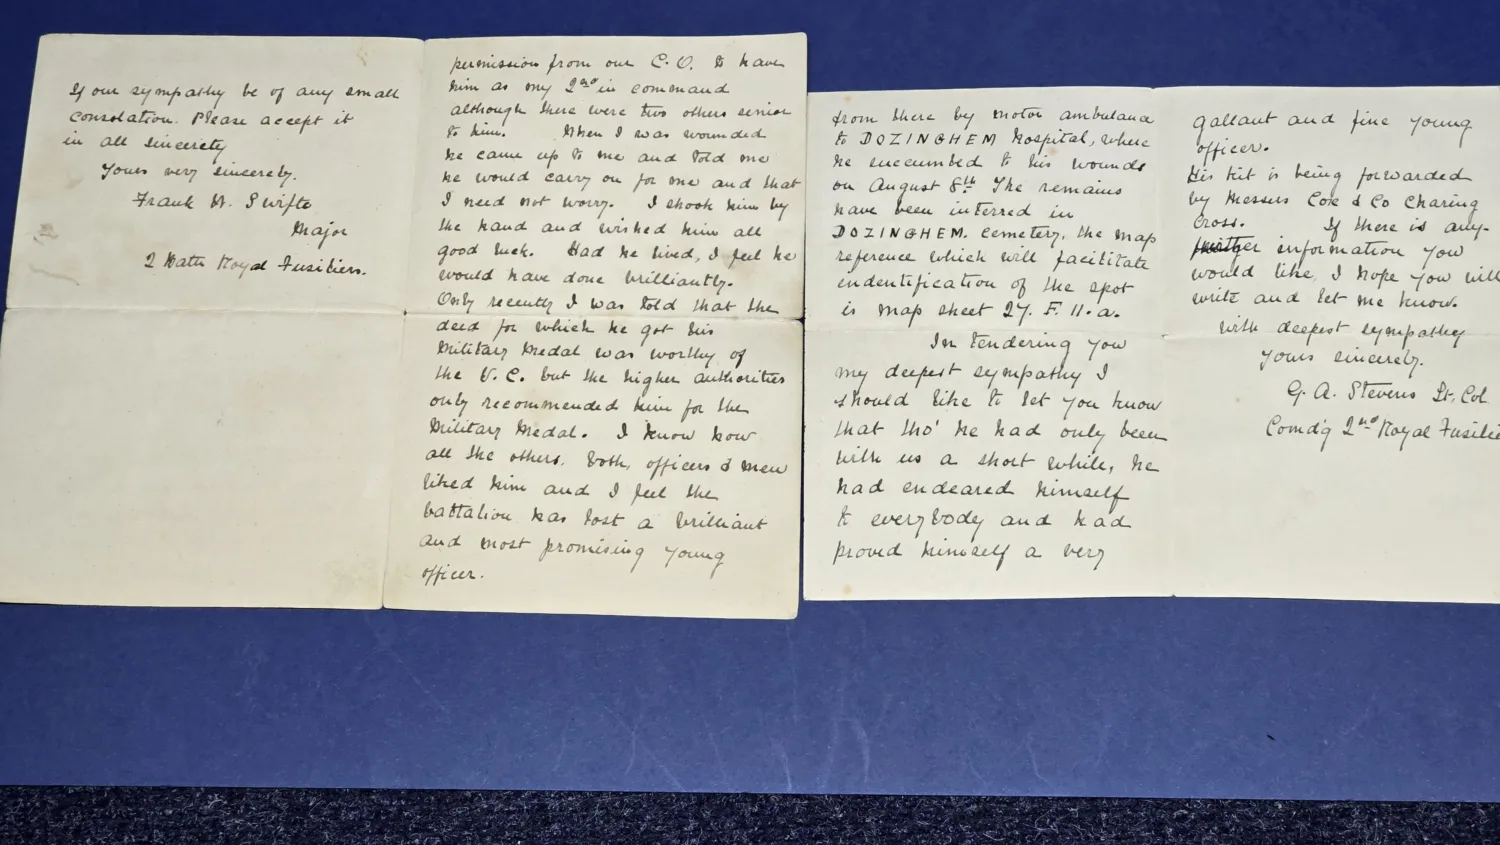 If our sympathy be of any small
consolation. Please accept it
in all sincerety
Yours very sincerely.
Frank W. Swifte
Major
2 Battn Royal Fusiliers.
permission from our C.O. to have
him as my 2nd in command
although there were two others senior
to him. When I was wounded
he came up to me and told me
he would carry on for me and that
I need not worry. I shook him by
the hand and wished him all
good luck. Had he lived, I feel he
would have done brilliantly.
Only recently I was told that the
deed for which he got his
Military Medal was worthy of
the V.C. but the higher authorities
only recommended him for the
Military Medal. I know how
all the others, both, officers & men
liked him and I feel the
battalion has lost a brilliant
and most promising young
officer.
from there by motor ambulance
to DOZINGHEM Hospital, where
he succumbed to his wounds
on August 8th The remains
have been interred in
DOZINGHEM. cemetery, the map
reference which will facilitate
endentification of the spot
is map sheet 27. F. 11. a.
In tendering you
my deepest sympathy I
should like to let you know
that tho' he had only been
with us a short while, he
had endeared himself
to everybody and had
proved himself a very
gallant and fine young
officer.
His kit is being forwarded
by Messers Cox & Co Charing
Cross. If there is any-
further information you
would like, I hope you will
write and let me know.
With deepest sympathy
Yours sincerely.
G. A. Stevens Lt. Col
Comd'g 2nd Royal Fusilie